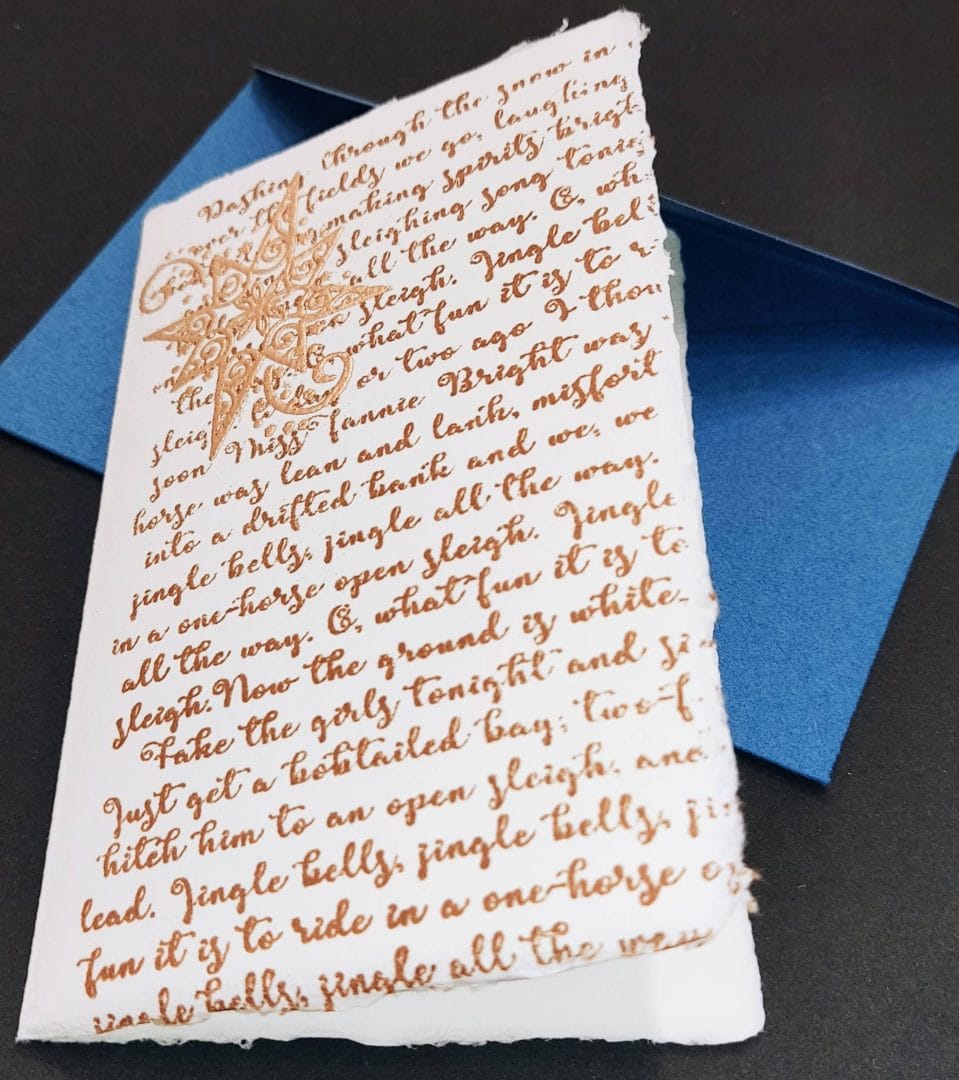 Dashing through the snow in
over the fields we go, laughing
making spirits bright
sleighing song
all the way. O, wh
sleigh. Jingle bel
what fun it is to r
the or two ago I thou
sleig
soon Miss Fannie Bright way
horse way lean and lank, misfort
into a drifted bank and we, we
jingle bells, jingle all the way.
in a one-horse open sleigh. Jingle
all the way. O, what fun it is to
sleigh. Now the ground is white
Take the girls tonight and si
Just get a bobtailed bay; two-f
hitch him to an open sleigh, and
lead. Jingle bells, jingle bells, ji
fun it is to ride in a one-horse o
jingle bells, jingle all the way